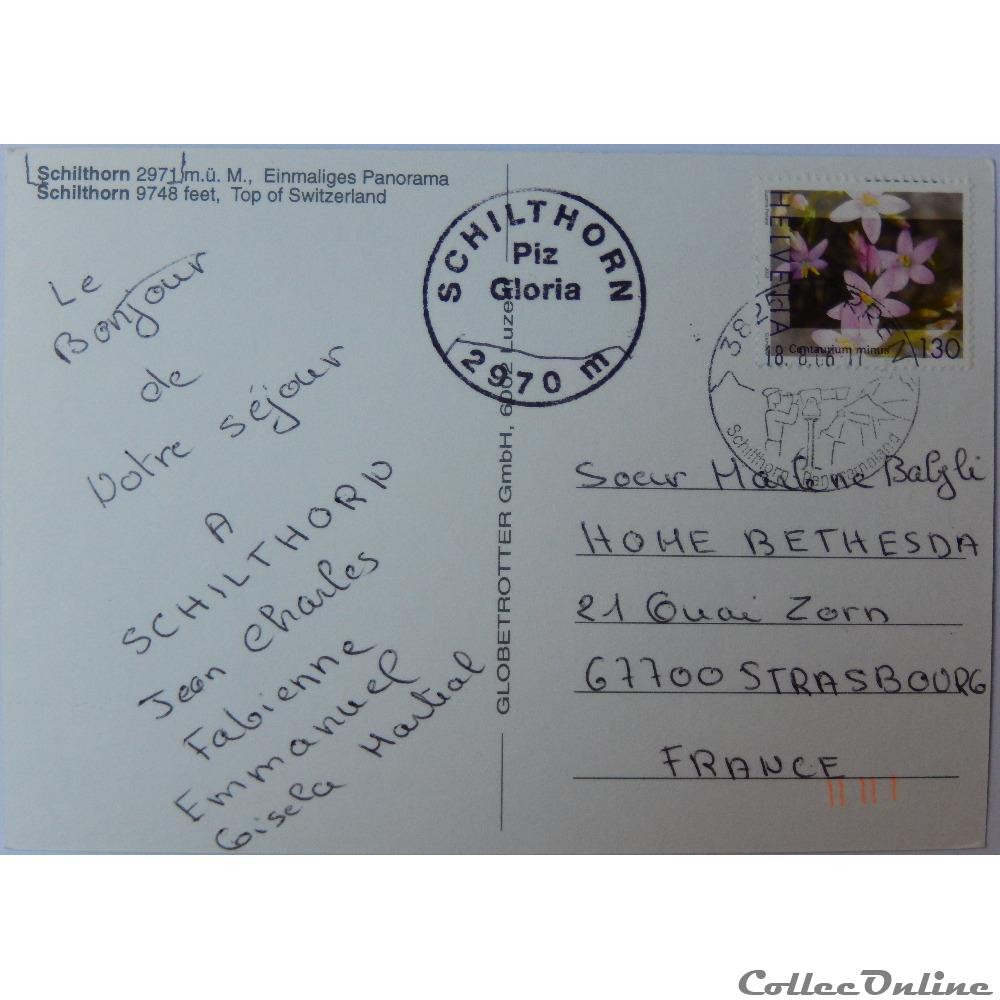 Schilthorn 2971 m.ü. M., Einmaliges Panorama
Schilthorn 9748 feet, Top of Switzerland
Le
Bonjour
de
Notre séjour
A
SCHILTHORN
Jean Charles
Fabienne
Emmanuel
Gisela Martial
SCHILTHORN
Piz
Gloria
2970 m
GLOBETROTTER GmbH, 6002 Luzern
HELVETIA
Centaurium minus
130
Schilthorn Panoramaland
Soeur Marlene
HOME BETHESDA
21 Quai Zorn
67700 STRASBOURG
FRANCE
CollecOnline